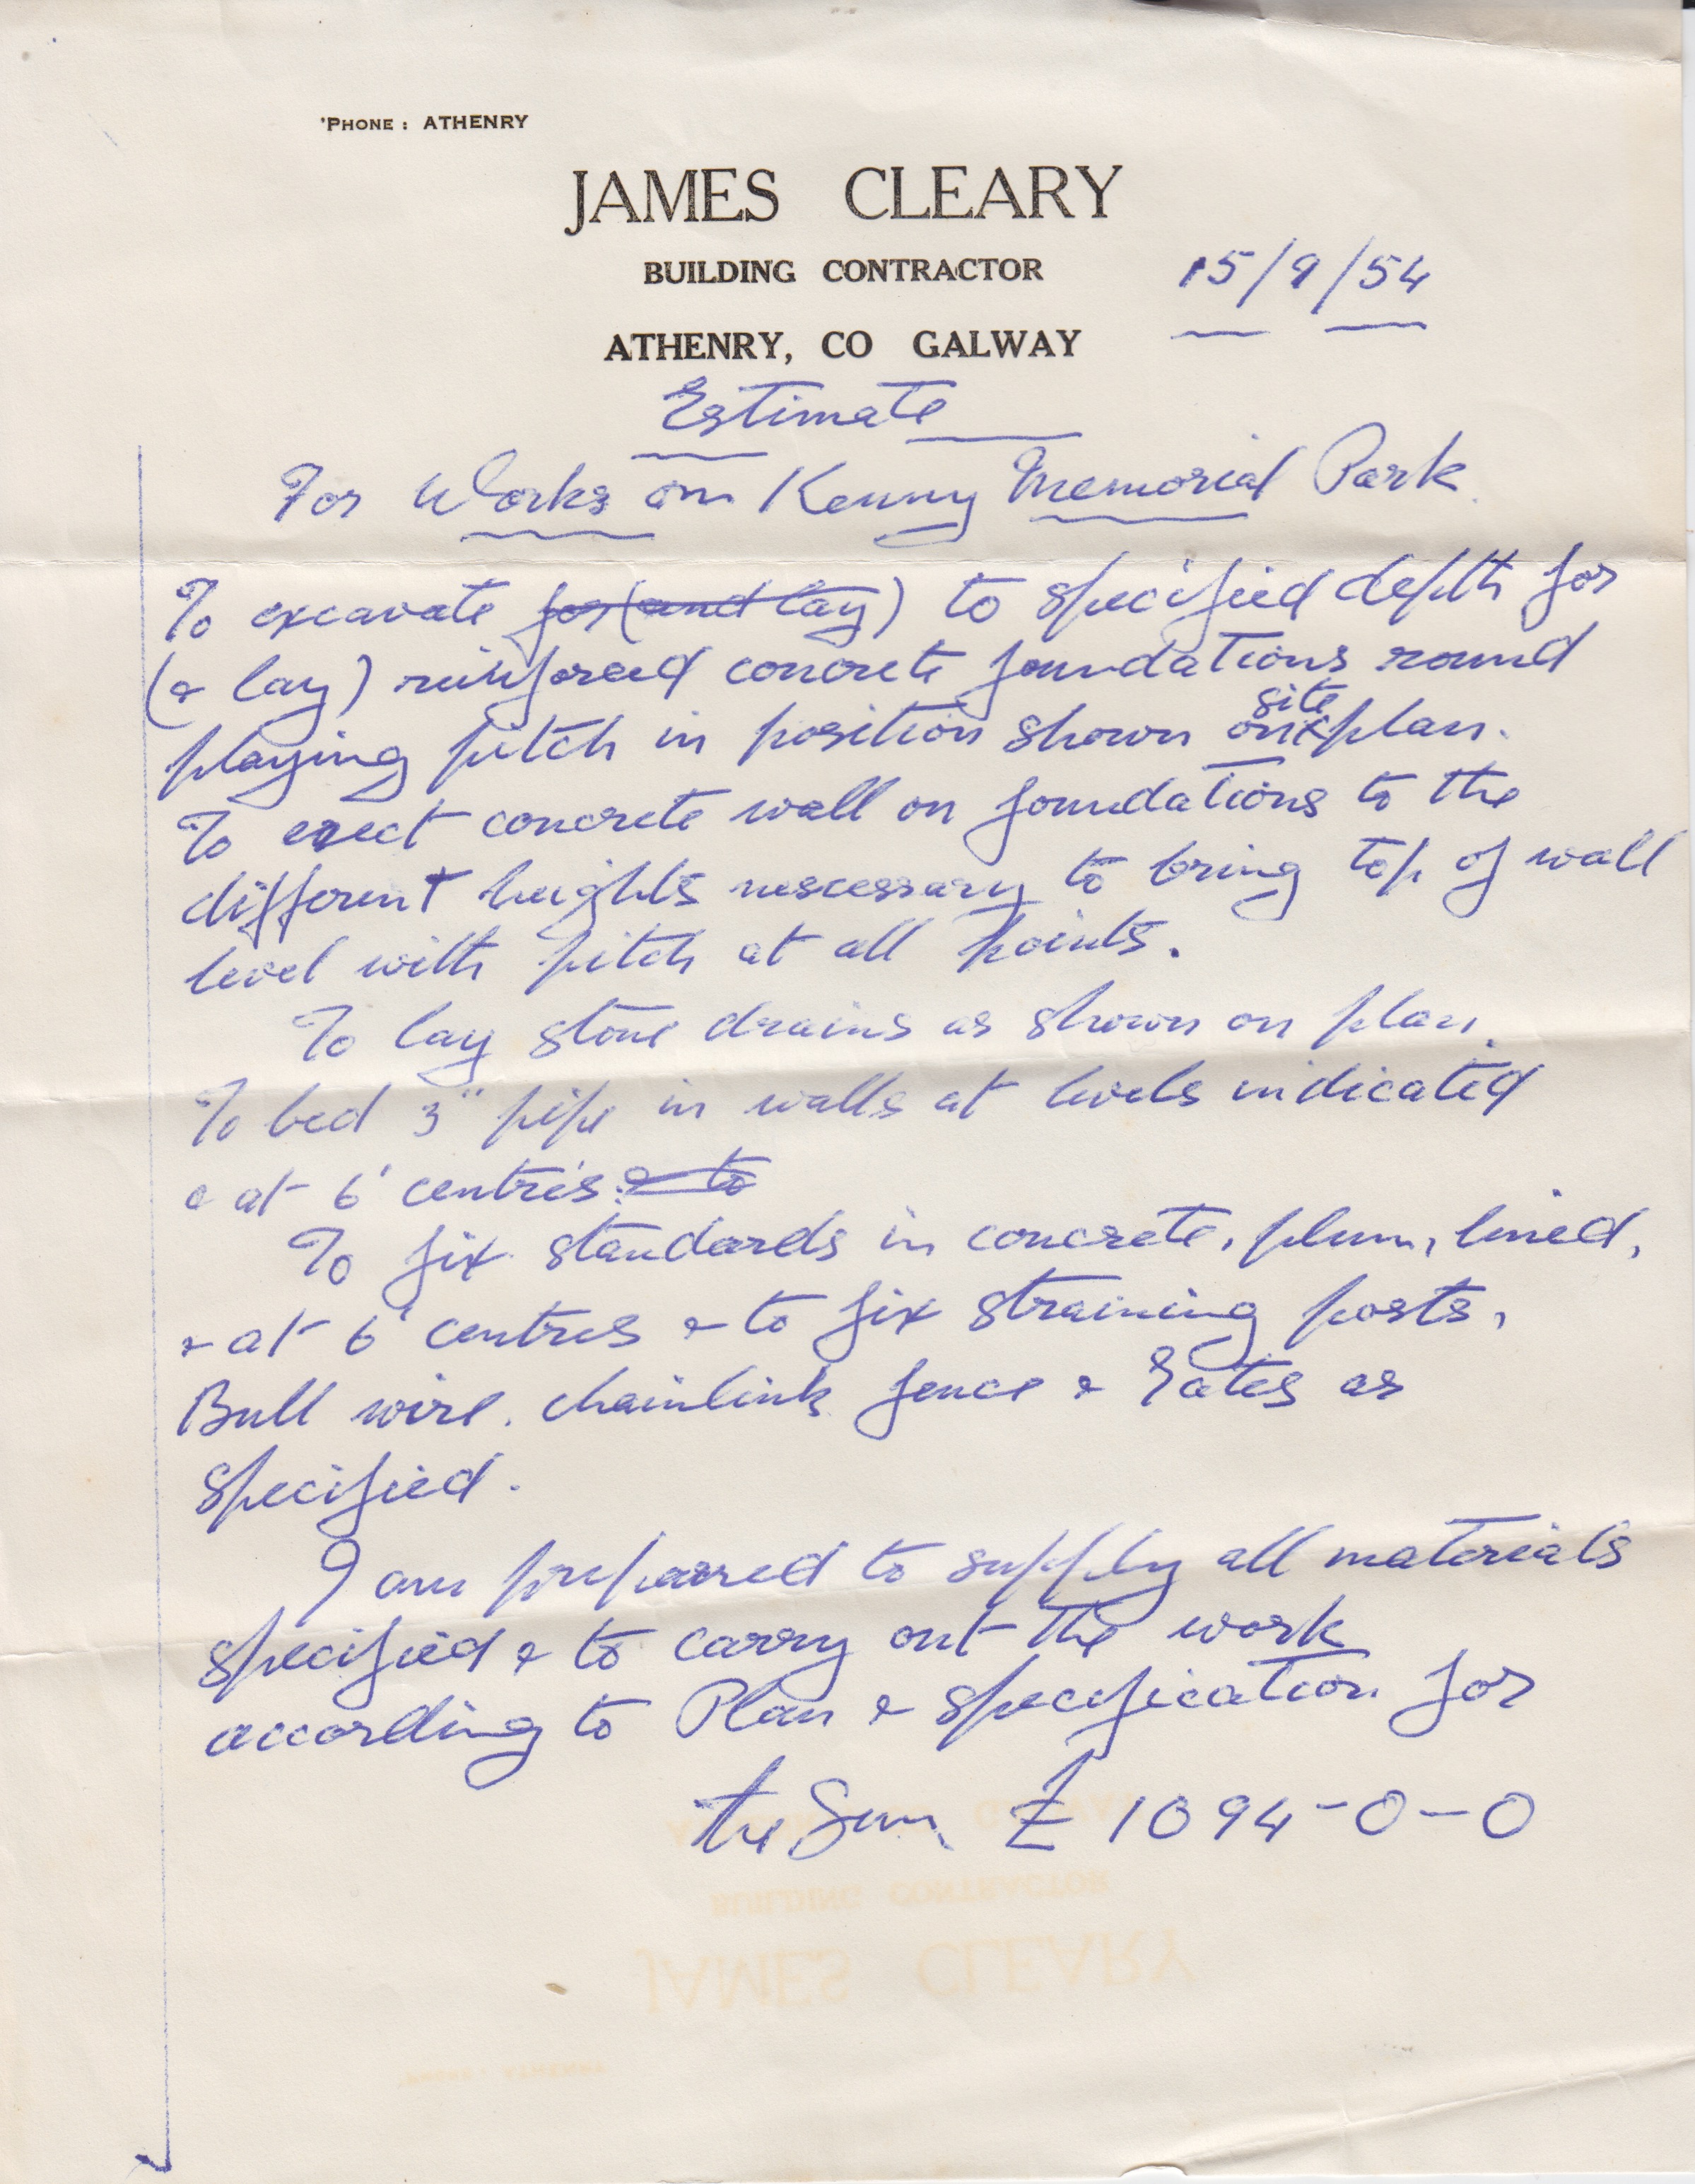 'PHONE : ATHENRY
JAMES CLEARY
BUILDING CONTRACTOR
15/9/54
ATHENRY, CO GALWAY
Estimate
For Works on Kenny Memorial Park.
To excavate for (and lay) to specified depth for
(& lay) reinforced concrete foundations round
site
playing pitch in position shown on plan.
To erect concrete wall on foundations to the
different heights nescessary to bring top of wall
level with pitch at all points.
To lay stone drains as shown on plan.
To bed 3" pipe in walls at levels indicated
& at 6' centres. & to
To fix standards in concrete, plum, lined,
& at 6' centres & to fix straining posts,
Bull wire, chainlink fence & Gates as
specified.
I am prepared to supply all materials
specified & to carry out the work
according to Plan & specification for
the Sum £ 1094-0-0
BUILDING CONTRACTOR
JAMES CLEARY
'PHONE : ATHENRY